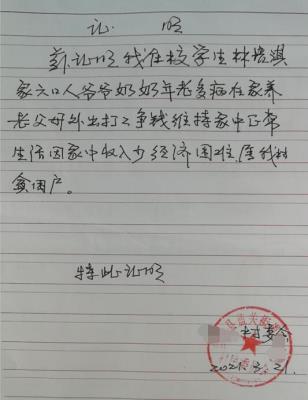 证 明
兹证明我在校学生林培淇
家六口人爷爷奶奶年老多病在家养
老父母外出打工争钱维持家中正常
生活因家中收入少经济困难，属我村
贫困户。
特此证明
村委会
2021.3.21.